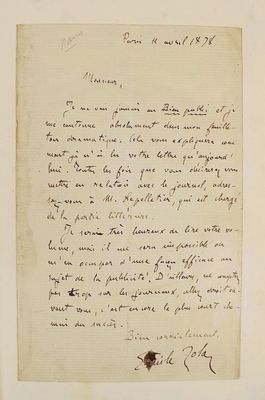 Paris 11 avril 1878
Monsieur,
Je ne vais jamais au Bien public et je
me cantonne absolument dans mon feuille-
ton dramatique. Cela vous expliquera com-
ment j'ai lu votre lettre qu'aujourd'
hui. Toutes les fois que vous désirerez vous
mettre en relation avec le journal, adres-
sez-vous à M. Lepelletier, qui est chargé
de la partie littéraire.
Je serai très heureux de lire votre vo-
lume, mais il me sera impossible de
m'en occuper d'une façon efficace au
sujet de la publicité. D'ailleurs, ne comptez
pas trop sur les journaux, allez droit de-
vant vous, c'est encore le plus court che-
min du succès.
Bien cordialement,
Emile Zola